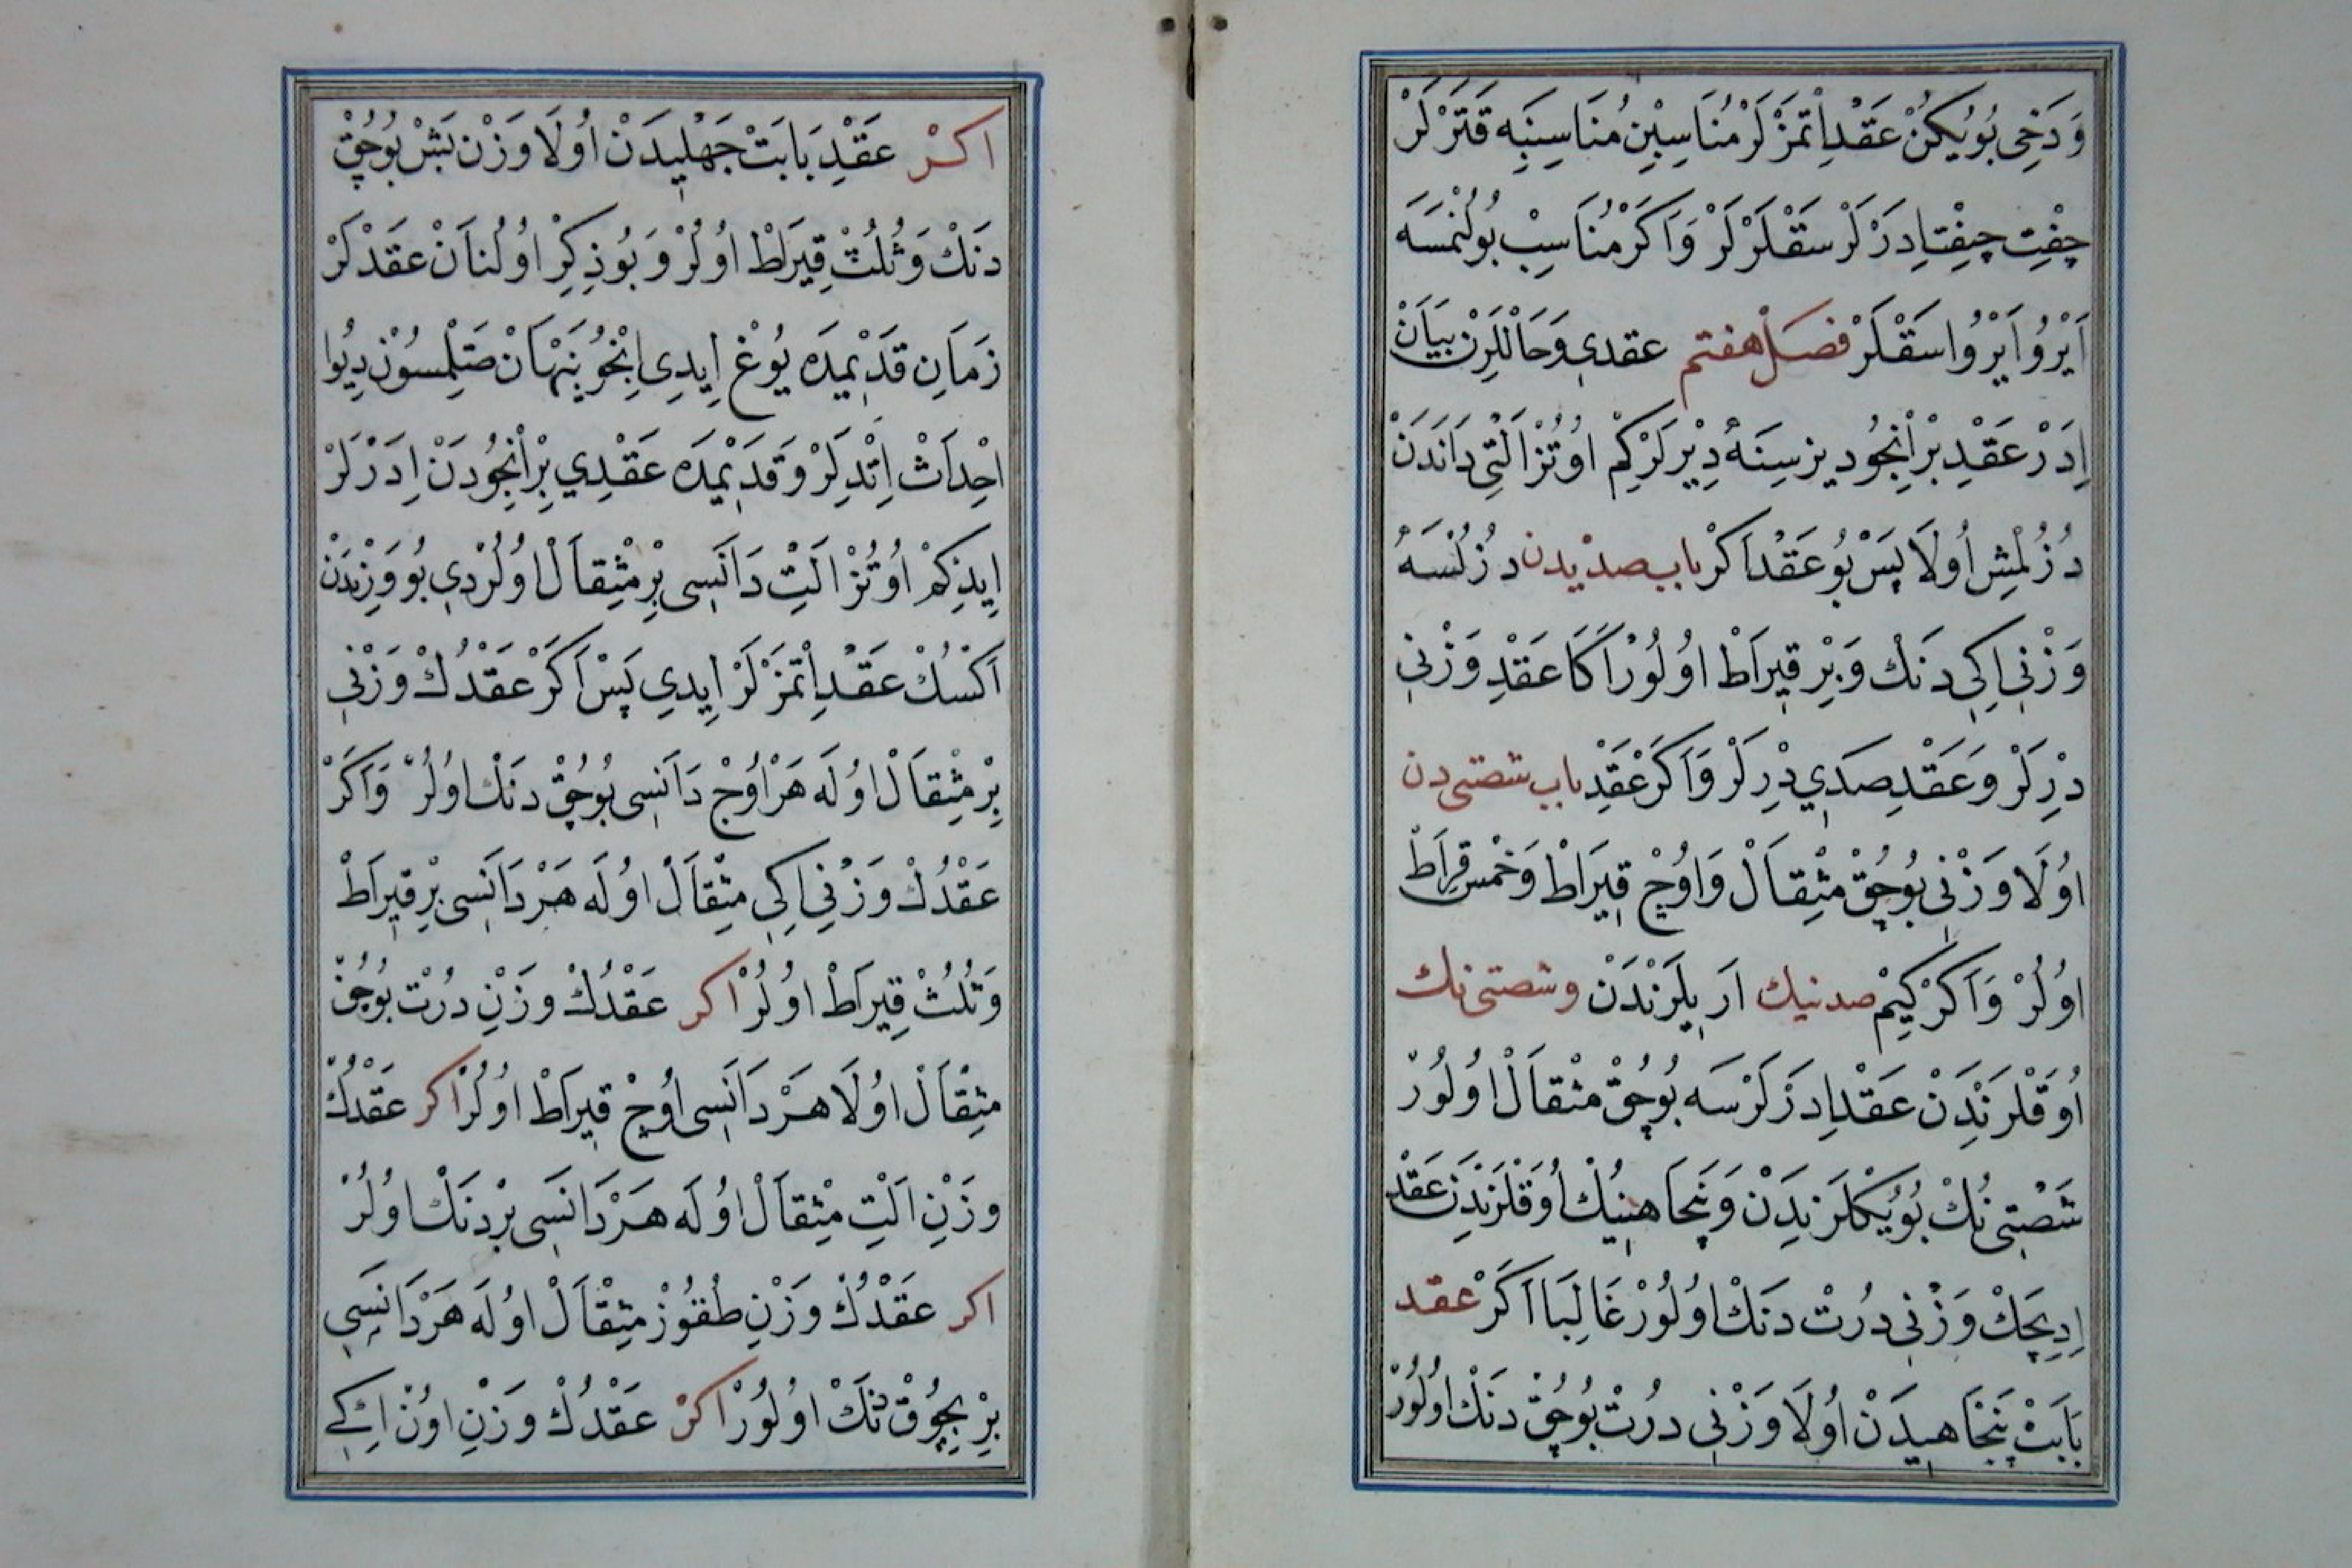 وَدَخِی بُویُكِنْ عَقْد اِتْمَزْلَرْ مُنَاسِبِین مُنَاسِبِنِه قَتَرْلَرْ
چِفْت چِفْت اِدَرْلَرْ سَقْلَرْلَرْ وَاَكَرْ مُنَاسِبْ بُولُنْمَسَه
اَیْرُو اَیْرُو اسَقْلَرْ فصل هفتم عقدی وَحَالْلَرِنْ بیَانْ
اِدَرْ عَقْدِ بْرْ اِنْجُو دیزسِنَه دِیْرلَرْكِمْ اوُتُزْ اَلْتِی دَانَدَنْ
دُزُلْمِشْ اُولَا پَسْ بُو عَقْد اَكَرْ باب صدیدن دُزُلْسَه
وَزْنِی اِكِی دَنَك وَبِرْ قِیرَاطْ اوُلُورْ اَكَا عَقْدِ وَزْنِی
دِرْلَرْ وَعَقْدِ صَدِی دِرْلَرْ وَاَكَرْ عَقْدِ باب شصتی دن
اوُلَا وَزْنِی بُوچُقْ مِثْقَالْ وَاوُچْ قِیرَاطْ وَخَمْس قِرَاطْ
اوُلُرْ وَاَكَرْ كِیمْ صدنیك اَریلَرَنْدَنْ وشصتی نك
اُوَقْلَرَنْدَنْ عَقْد اِدَرْلَرْسَه بُوچُقْ مِثْقَالْ اوُلُورْ
شَصْتِی نُكْ بُویُكْلَرَنْدَنْ وَپَنْجَاهِینُكْ اُوَقْلَرَنْدَنْ عَقْد
اِدِیجَكْ وَزْنِی دُرْتْ دَنَكْ اوُلُورْ غَالِبَا اَكَرْ عقد
بَابَتْ پَنْجَاهِیدَنْ اُولَا وَزْنِی دُرْتْ بُوچُقْ دَنَكْ اوُلُورْ
اكر عَقْدِ بَابَتْ چَهْلِیدَنْ اُولَا وَزْنِ بَشْ بُوچُقْ
دَنَكْ وَثُلُثْ قِیرَاطْ اوُلُرْ وَبُو ذِكِرْ اوُلُنَانْ عَقْدْلَرْ
زَمَانِ قَدِیْمِدَه یُوغْ اِیدِی اِنْجُو پَنْهَانْ صَتِلْمَسُوْن دِیُوا
احْدَاثْ اِتْدِلَرْ وَقَدِیْمِدَه عَقْدِی بِرْ اِنْجُودَنْ اِدَرْلَرْ
اِیدِكِمْ اوُتُزْ اَلْتِ دَانَسِی بِرْ مِثْقَالْ اوُلُرْدِی بُو وَزِنْدَنْ
اَكْسُكْ عَقْد اِتْمَزْلَرْ اِیدِی پَسْ اَكَرْ عَقْدُكْ وَزْنِی
بِرْ مِثْقَالْ اوُلَه هَرْ اُوچْ دَانَسِی بُوچُقْ دَنَكْ اوُلُرْ وَاَكَرْ
عَقْدُكْ وَزْنِی اِكِی مِثْقَالْ اوُلَه هَرْ دَانَسِی بِرْ قِیرَاطْ
وَثُلُثْ قِیرَاطْ اوُلُرْ اكر عَقْدُكْ وزْنِ دُرْت بُوچُقْ
مِثْقَالْ اوُلَا هَرْ دَانَسِی اوُچْ قِیرَاطْ اوُلُرْ اكر عَقْدُكْ
وزْنِ اَلْتِ مِثْقَالْ اوُلَه هَرْ دَانَسِی بِرْ دَنَكْ اوُلُرْ
اكر عَقْدُكْ وزْنِ طُقُوزْ مِثْقَالْ اوُلَه هَرْ دَانَسِی
بِرْ بُچُوقْ دَنَكْ اوُلُورْ اكر عَقْدُكْ وزْنِ اوُنْ اِكِی